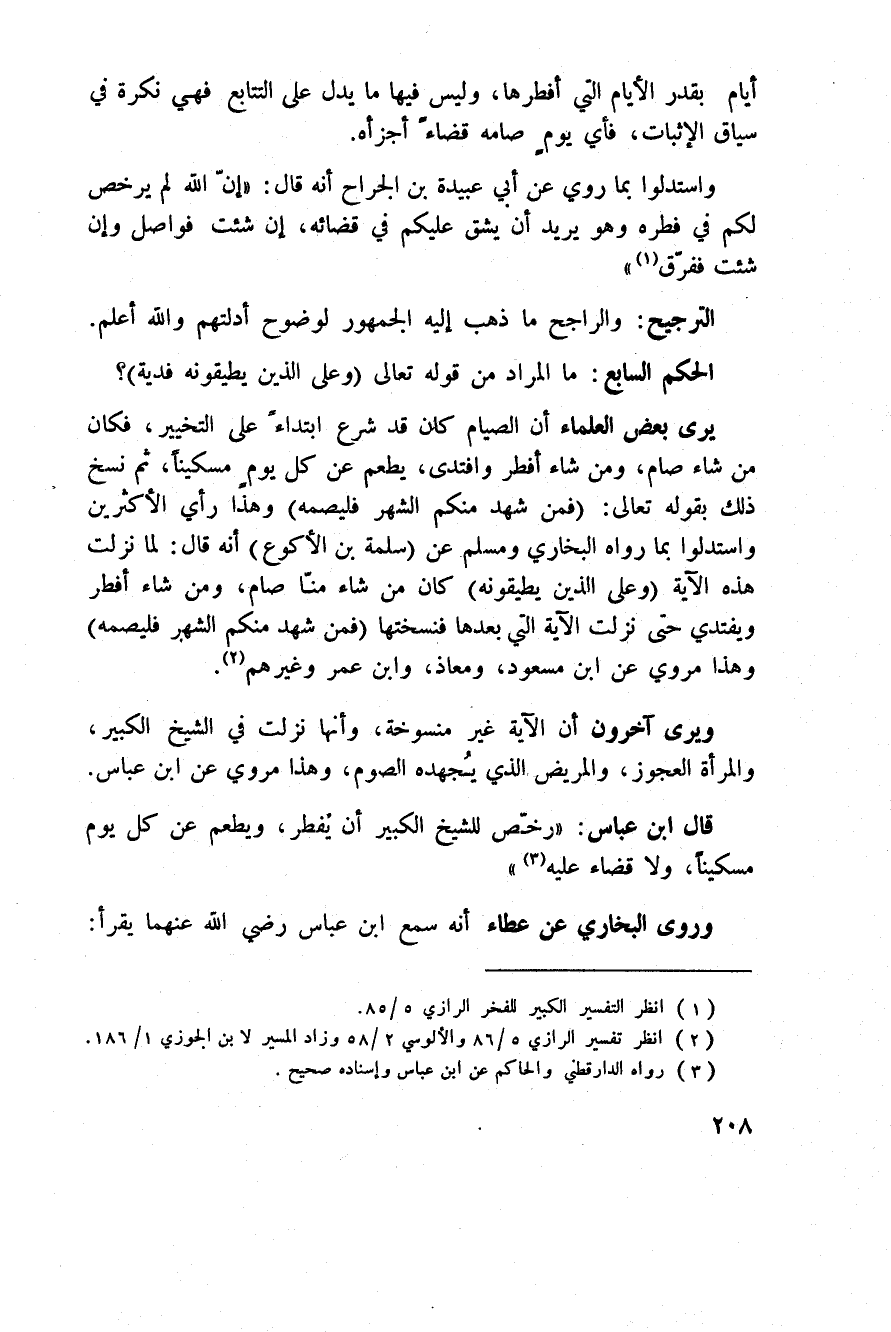 أيام بقدر الأيام التي أفطرها، وليس فيها ما يدل على التتابع فهي نكرة في
سياق الإثبات، فأي يومٍ صامه قضاءً أجزأه.
واستدلوا بما روي عن أبي عبيدة بن الجراح أنه قال: «إنّ الله لم يرخص
لكم في فطره وهو يريد أن يشق عليكم في قضائه، إن شئت فواصل وإن
شئت ففرّق(١)»
الترجيح: والراجح ما ذهب إليه الجمهور لوضوح أدلتهم والله أعلم.
الحكم السابع: ما المراد من قوله تعالى (وعلى الذين يطيقونه فدية)؟
يرى بعض العلماء أن الصيام كان قد شرع ابتداءً على التخيير، فكان
من شاء صام، ومن شاء أفطر وافتدى، يطعم عن كل يومٍ مسكيناً، ثم نسخ
ذلك بقوله تعالى: (فمن شهد منكم الشهر فليصمه) وهذا رأي الأكثرين
واستدلوا بما رواه البخاري ومسلم عن (سلمة بن الأكوع) أنه قال: لما نزلت
هذه الآية (وعلى الذين يطيقونه) كان من شاء منّا صام، ومن شاء أفطر
ويفتدي حتّى نزلت الآية التي بعدها فنسختها (فمن شهد منكم الشهر فليصمه)
وهذا مروي عن ابن مسعود، ومعاذ، وابن عمر وغيرهم(٢).
ويرى آخرون أن الآية غير منسوخة، وأنها نزلت في الشيخ الكبير،
والمرأة العجوز، والمريض الذي يُجهده الصوم، وهذا مروي عن ابن عباس.
قال ابن عباس: «رخّص للشيخ الكبير أن يُفطر، ويطعم عن كل يوم
مسكيناً، ولا قضاء عليه(٣)»
وروى البخاري عن عطاء أنه سمع ابن عباس رضي الله عنهما يقرأ:
(١) انظر التفسير الكبير للفخر الرازي ٥/٨٥.
(٢) انظر تفسير الرازي ٥/٨٦ والألوسي ٢/٥٨ وزاد المسير لابن الجوزي ١/١٨٦.
(٣) رواه الدارقطني والحاكم عن ابن عباس وإسناده صحيح.
٢٠٨